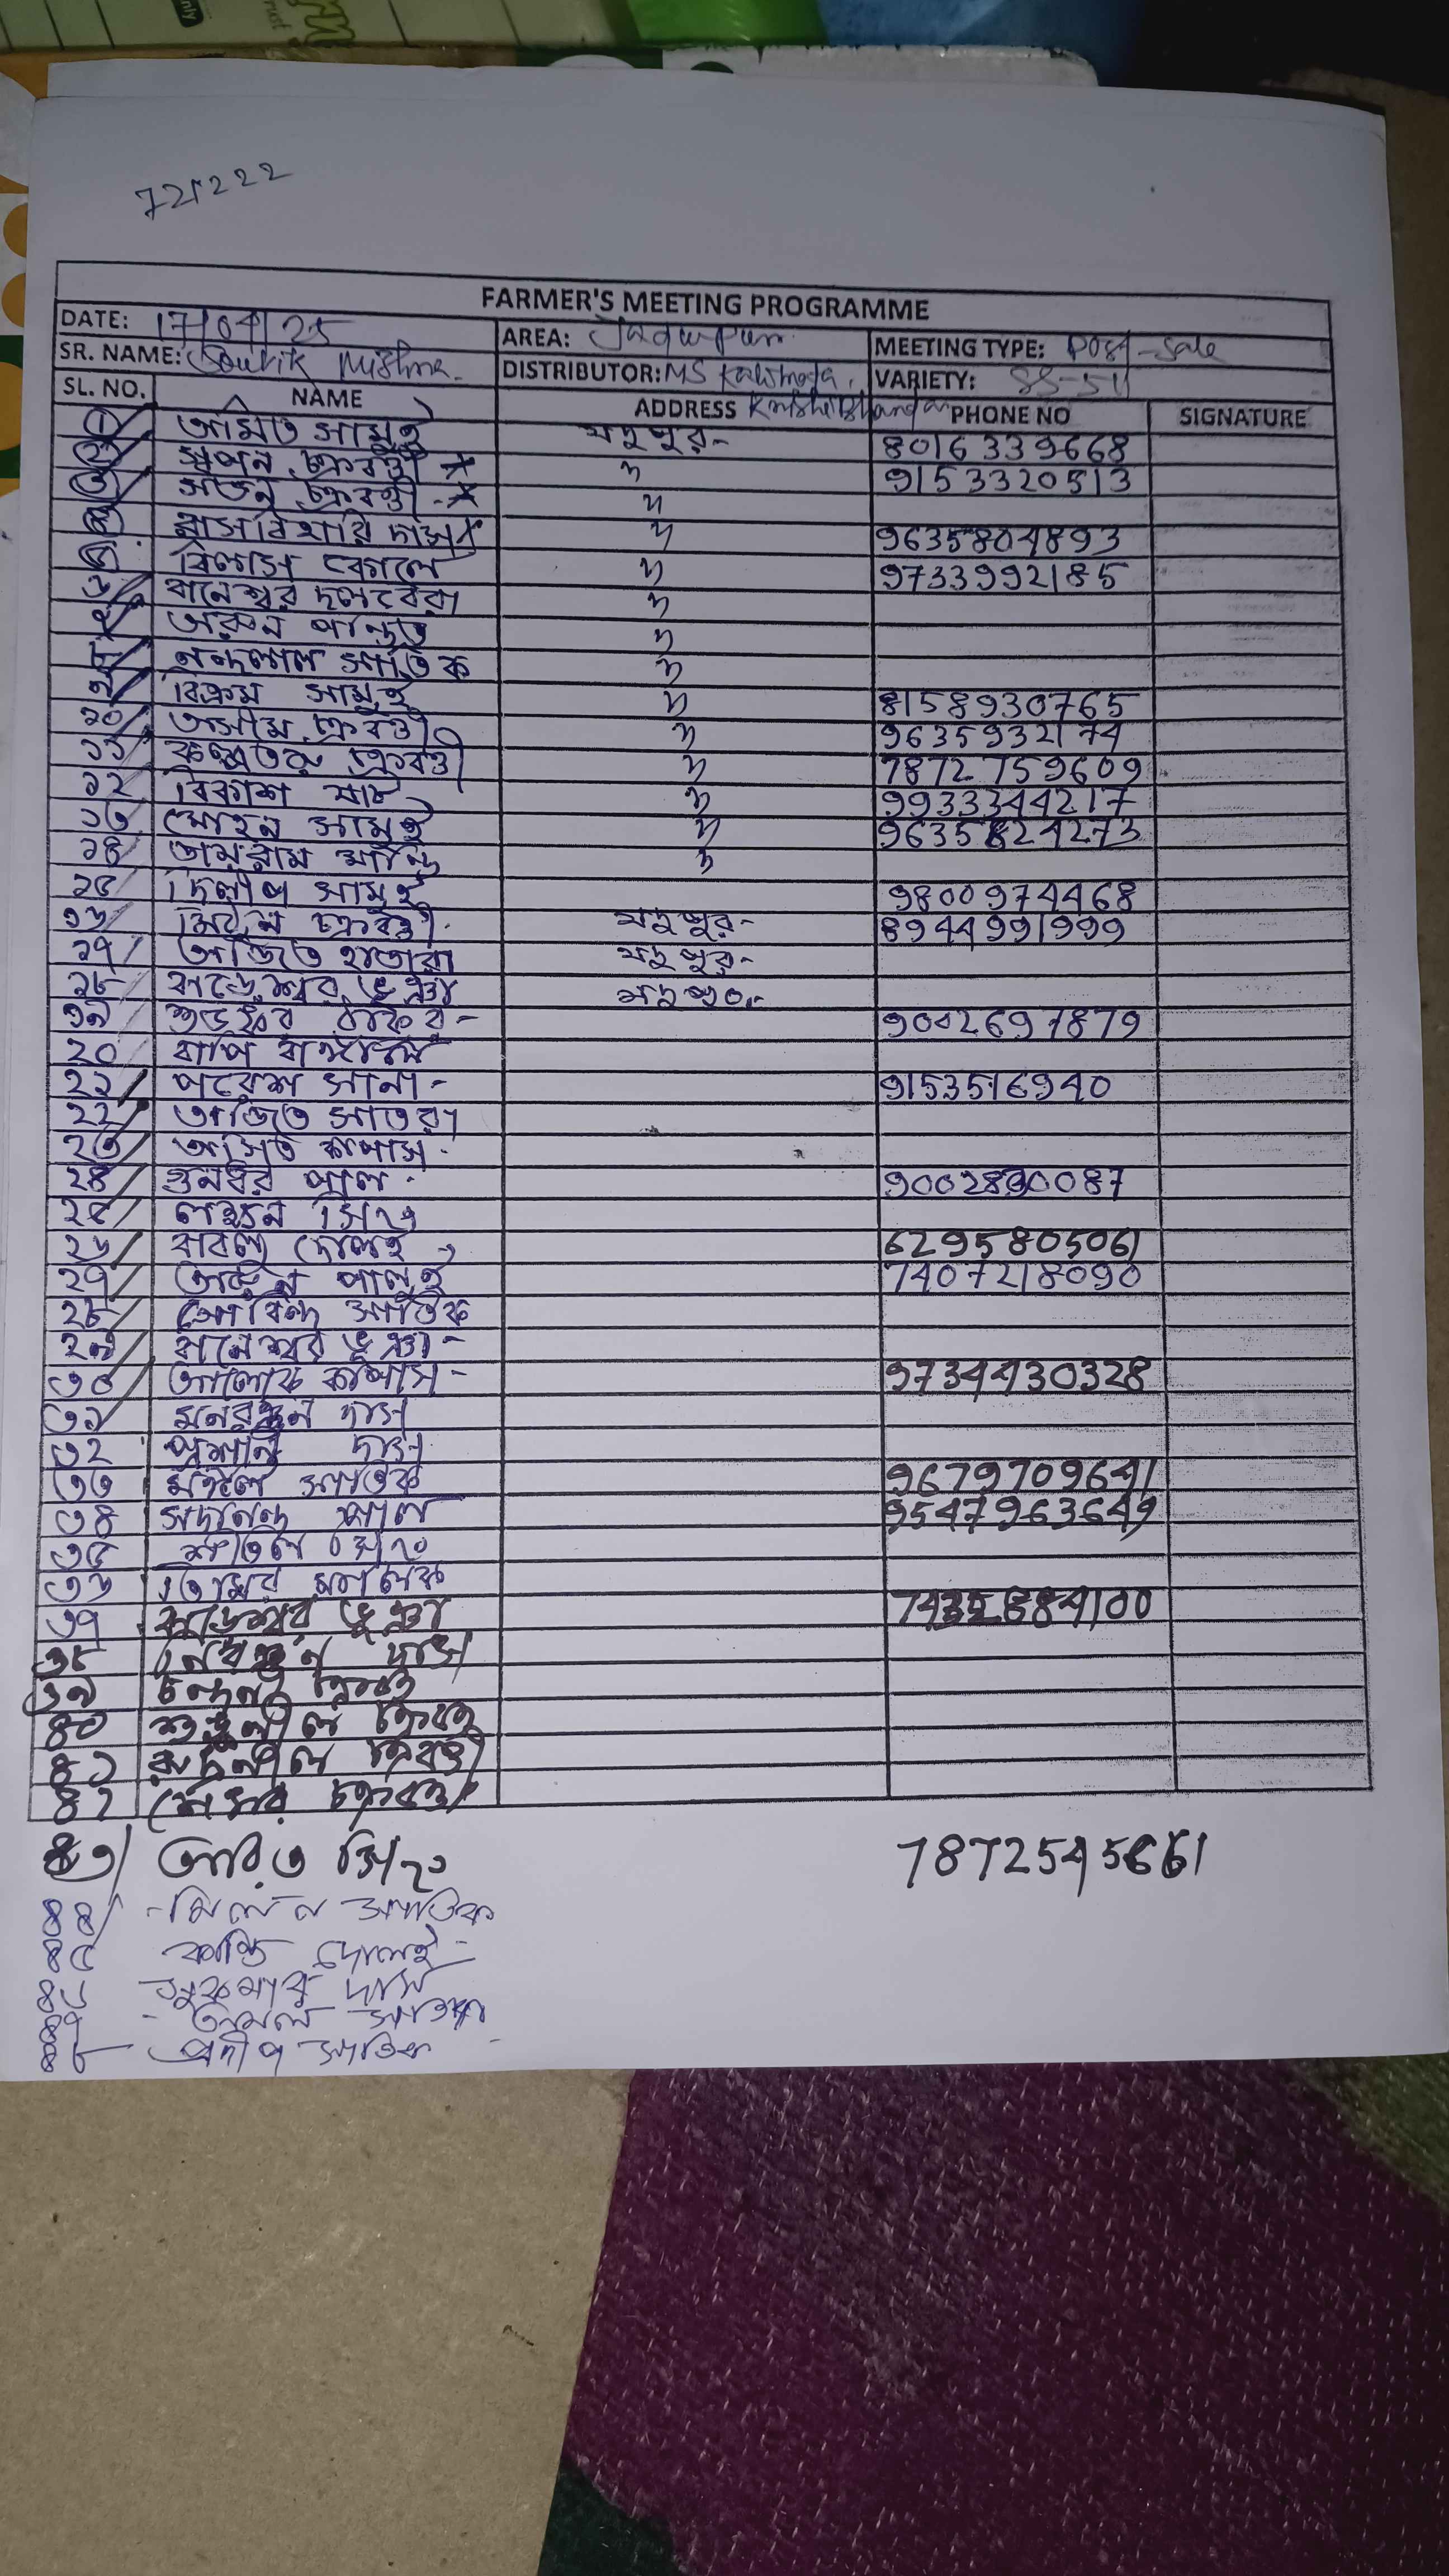 721222
FARMER'S MEETING PROGRAMME
DATE: 17/04/25 AREA: Jadupur MEETING TYPE: Post-Sale
SR. NAME: Souvik Mishra DISTRIBUTOR: MS VARIETY: SS-511
SL. NO. NAME ADDRESS PHONE NO SIGNATURE
১ অমিত সামুই যদুপুর- 8016339668
২ স্বপন চক্রবর্ত্তী 〃 9153320513
৩ চক্রবর্ত্তী 〃
৪ রাসবিহারি দাস 〃 9635804893
৫ বিলাস 〃 9733992185
৬ বানেশ্বর দলবেরা 〃
৭ অরুন পন্ডিত 〃
৮ নন্দলাল সাতিক 〃
৯ বিক্রম সামুই 〃 8158930765
১০ অসীম চক্রবর্ত্তী 〃 9635932174
১১ কল্পতরু চক্রবর্ত্তী 〃 7872759609
১২ বিকাশ 〃 9933344217
১৩ মোহন সামুই 〃 9635824273
১৪ মান্ডি 〃
১৫ দিলীপ সামুই 9800974468
১৬ মিঠুন চক্রবর্ত্তী যদুপুর- 8944991999
১৭ অজিত হাজরা যদুপুর-
১৮ ভূঞ্যা যদুপুর-
১৯ শুভঙ্কর ঠাকুর- 9002697879
২০ বাপি
২১ পরেশ সানা- 9153516940
২২ অজিত সাতরা
২৩ অসিত কাপাস
২৪ গুনধর পাল 9002890087
২৫ লক্ষন সিংহ
২৬ বাবলু দোলই 6295805061
২৭ অরুন পালুই 7407218090
২৮ গোবিন্দ সাতিক
২৯ বানেশ্বর ভূঞ্যা-
৩০ আলোক কাপাস- 9734430328
৩১ মনরঞ্জন দাস
৩২ প্রশান্ত দাস
৩৩ মঙ্গল সাতিক 9679709641
৩৪ সদানন্দ পাল 9547963649
৩৫ সিংহ
৩৬ তিমির
৩৭ ভূঞ্যা 7432884100
৩৮ নিরঞ্জন দাস
৩৯
৪০
৪১
৪২ চক্রবর্ত্তী
৪৩ সিংহ 7872545661
৪৪ মিলন সাতিক
৪৫ কান্তি দোলই
৪৬ সুকুমার দাস
৪৭
৪৮ প্রদীপ সাতিক